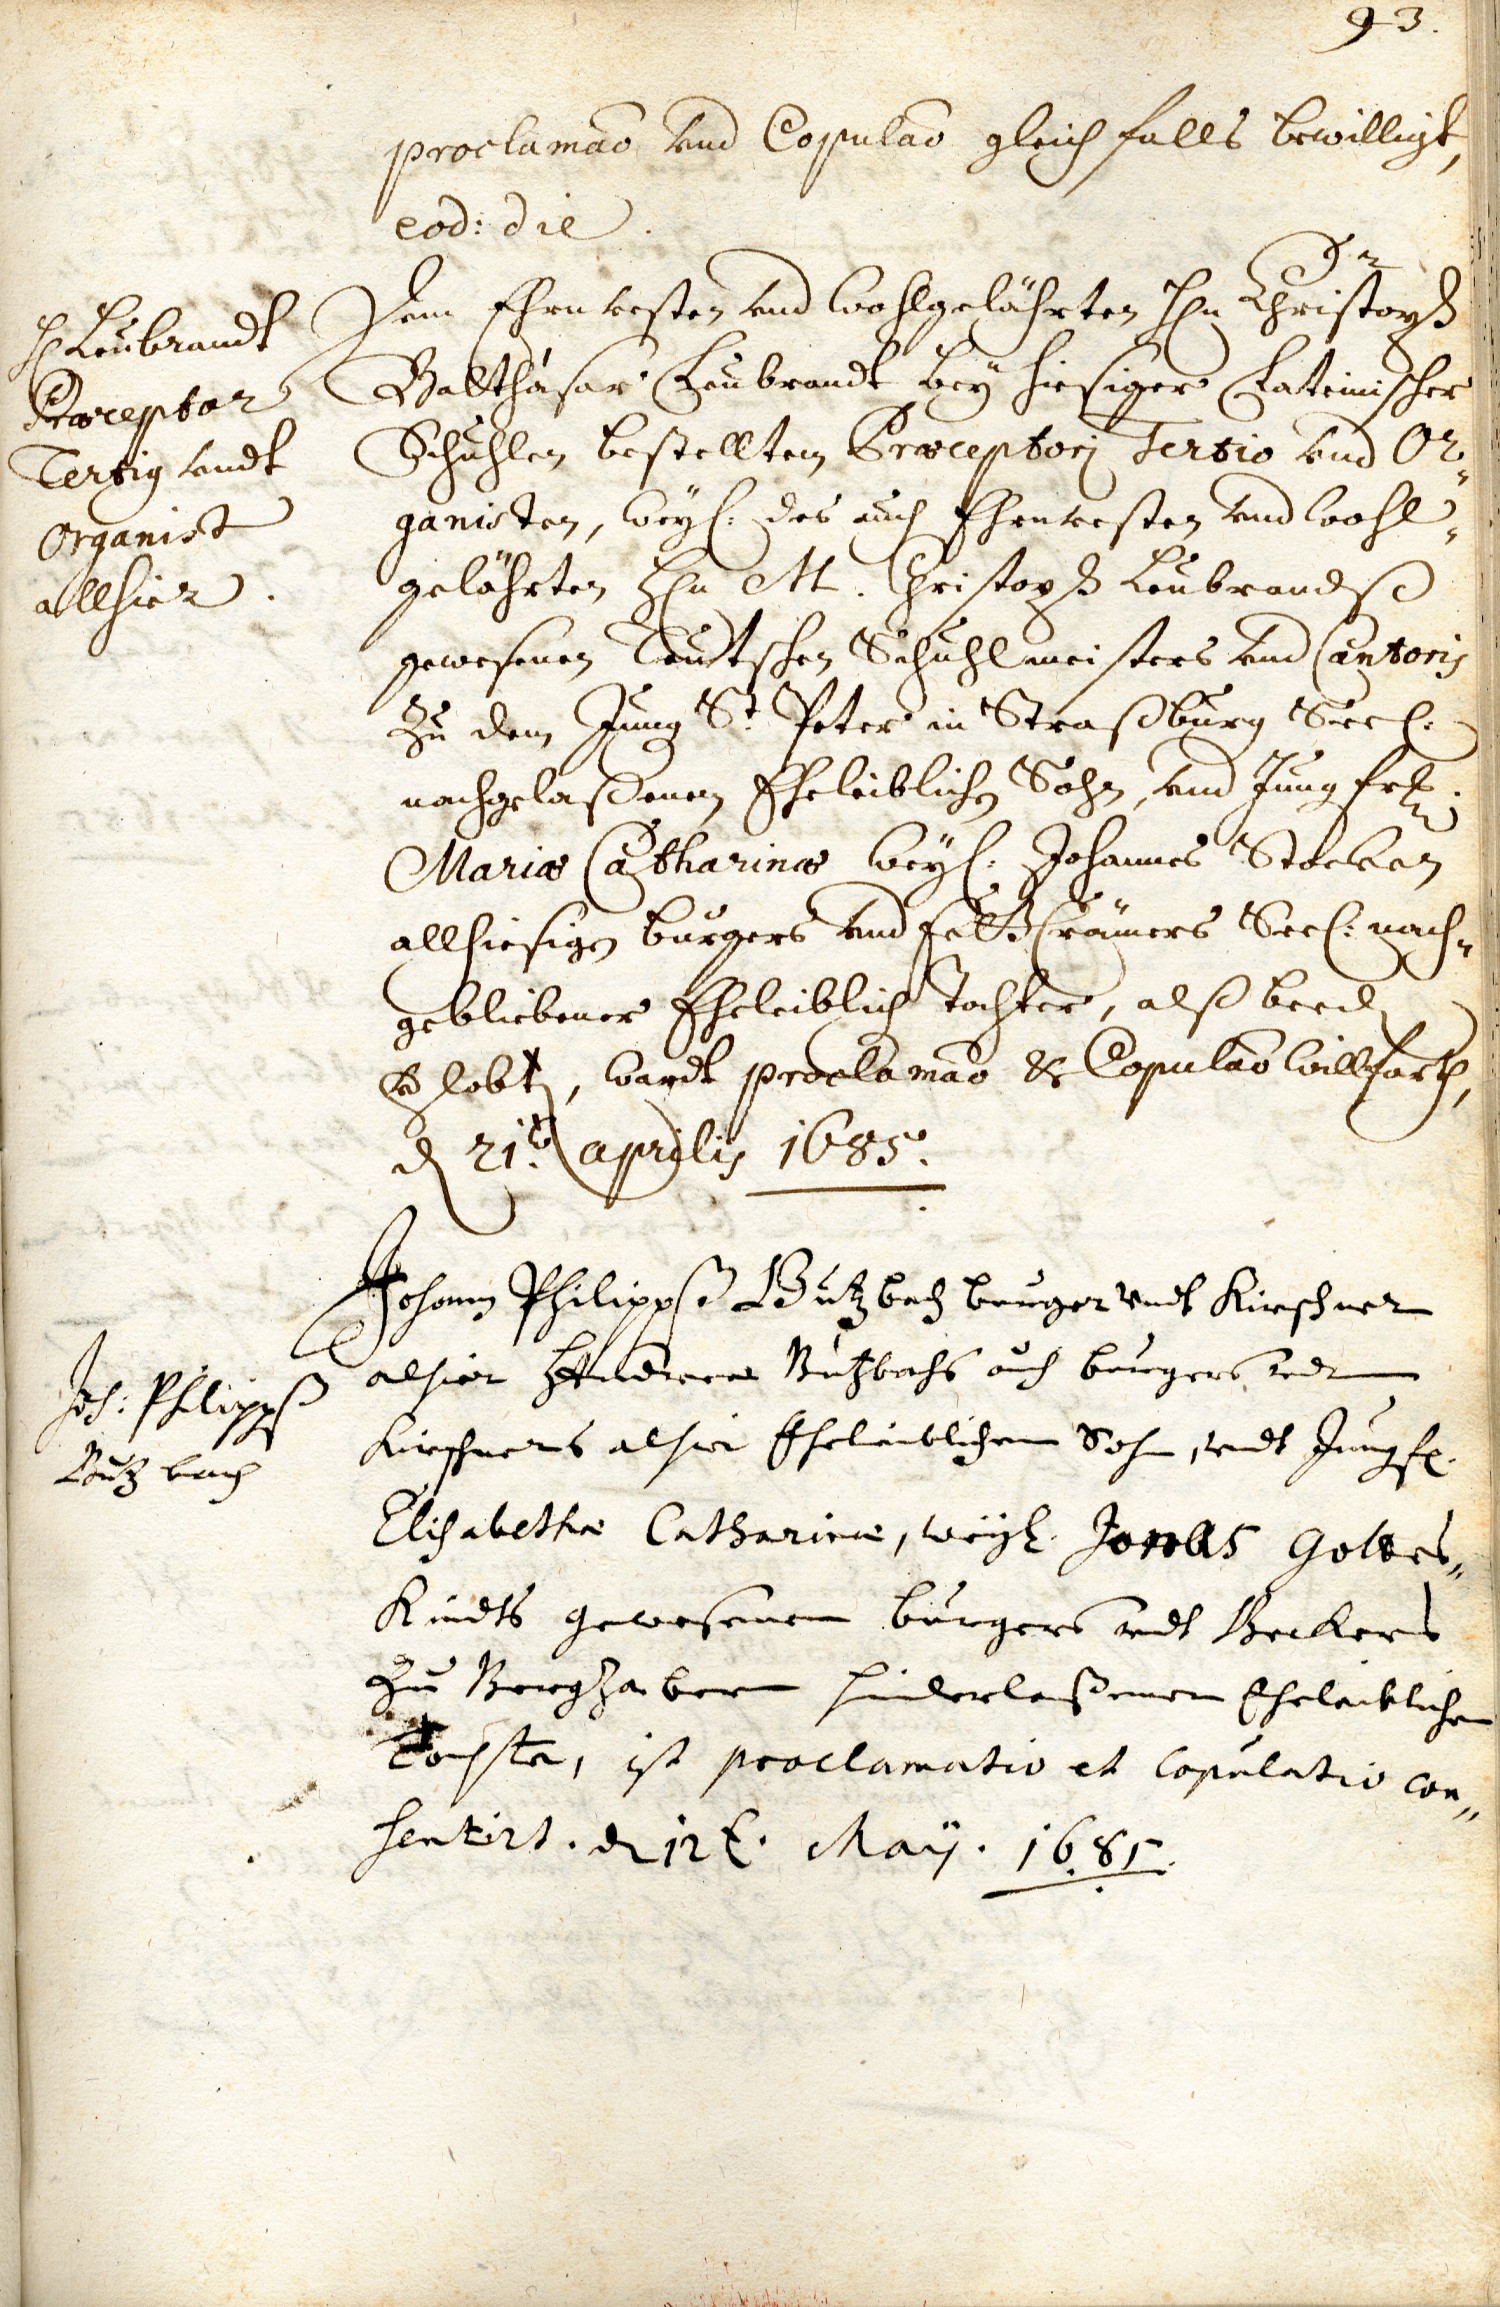 93.
proclamaõ und Copulaõ gleich falls bewilligt,
eod: die.
H Leubrandt
Præceptor
Tertiy undt
Organist
allhier.
Dem Ehrnvesten und wohlgelährten Hn Christoph
Balthasar Leubrandt bey hiesiger Lateinischer
Schuhlen bestelltem Præceptori Tertio und Or„
ganisten, weyl: des auch Ehrnvesten und wohl„
gelährten Hn M. Christoph Leubrandß
gewesenen Teutschen Schuhlmeisters und Cantoris
Zu dem Jung St. Peter in Straßburg Seel:
nachgelaßenen Eheleiblichen Sohn, und Jungfr.
Mariæ Catharinæ weyl: Johannes Stecken
allhiesigen burgers und Crämers Seel: nach„
gebliebener Eheleiblich Tochter, alß beede
verlobte, wardt proclamaõ & Copulaõ willfarth,
d 21t. aprilis 1685.
Joh: Philippß
Butzbach
Johann Philippß Butzbach burger undt Kirschner
alhier Andreae Butzbachs auch burgers undt
Kirschners alhier Eheleiblichem Sohn, undt Jungfr.
Elisabethæ Catharinæ, weyl. Jacobs Gottes„
Kindts gewesenen burgers undt Beckers
Zu Bergzabern hinderlaßenen Eheleiblichen
Tochter, ist proclamatio et copulatio con„
sentirt. d 12t. May. 1685.